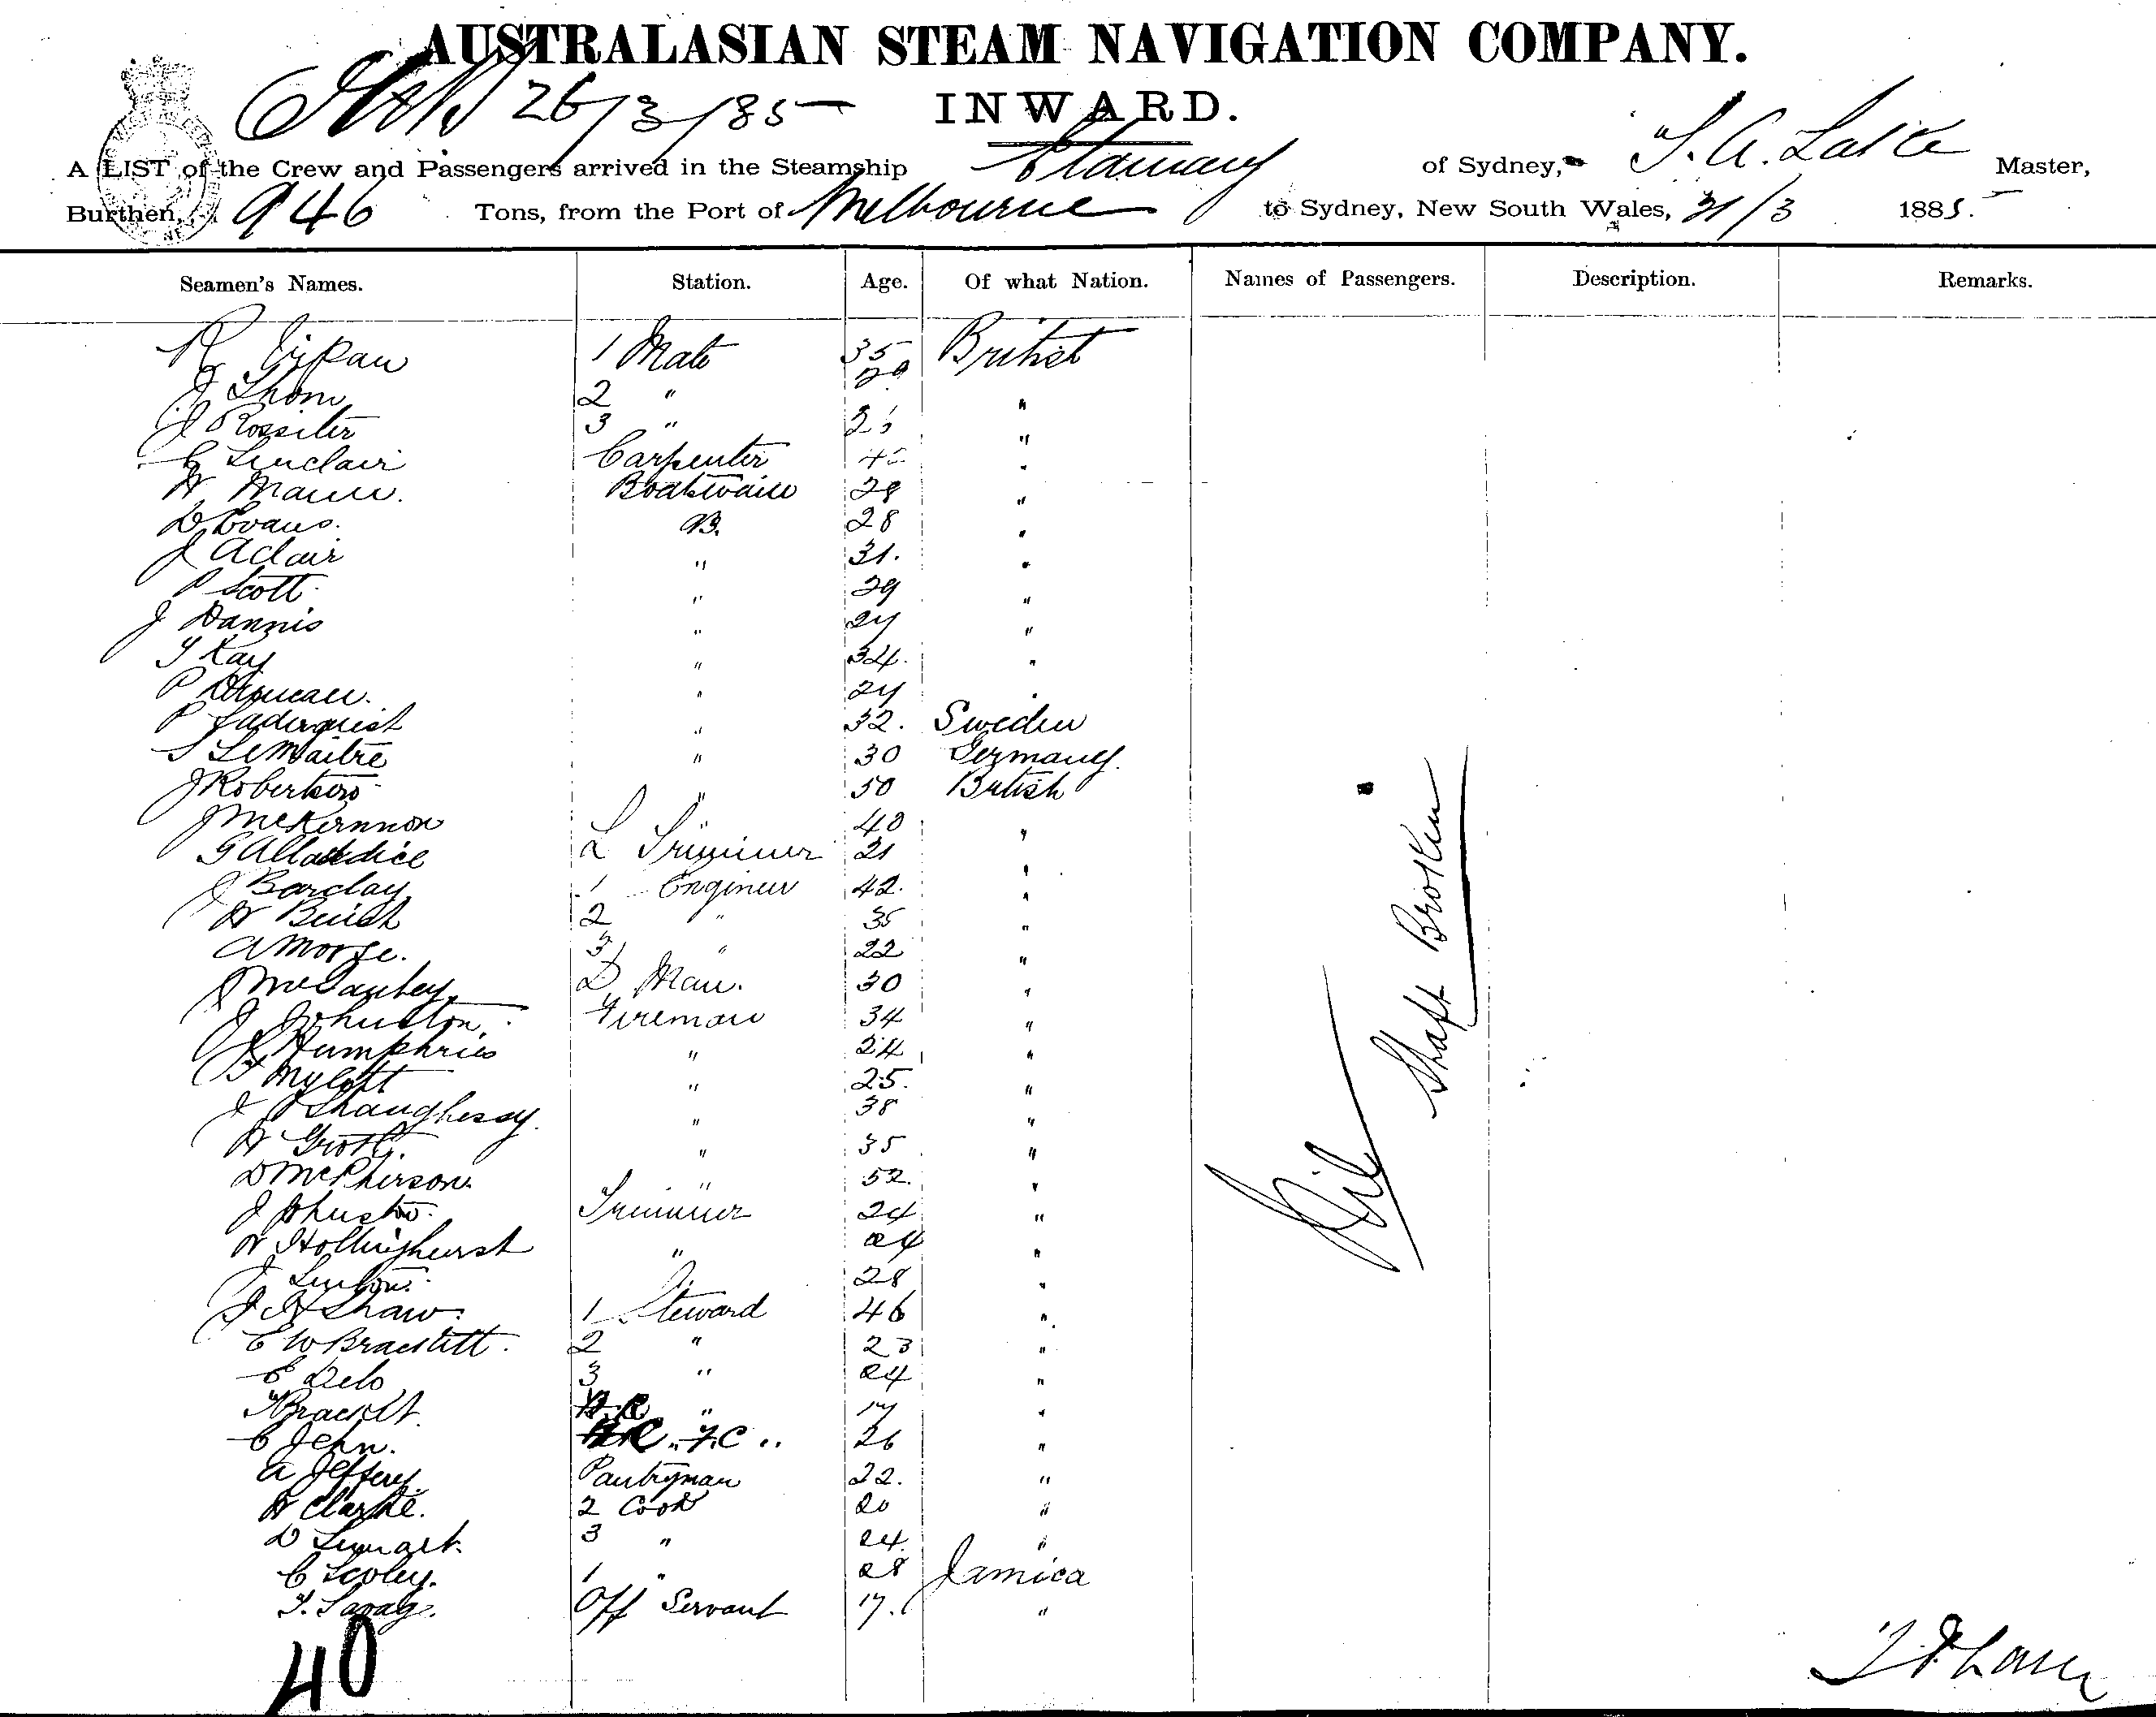 AUSTRALASIAN STEAM NAVIGATION COMPANY.
26/3/85 INWARD.
A LIST of the Crew and Passengers arrived in the Steamship of Sydney, Master,
Burthen, 946 Tons, from the Port of Melbourne to Sydney, New South Wales, 31/3 1885.
Seamen's Names. Station. Age. Of what Nation. Names of Passengers. Description. Remarks.
R 1 Mate 35 British
J Thom 2 " 29 "
J Rossiter 3 " "
C Sinclair Carpenter "
H Mann. Boatswain 28 "
D Evans. AB. 28 "
J Adair " 31. "
P Scott " 29 "
J Dannis " 24 "
T Kay " 34. "
P " 24 "
P " 32. Sweden
S LeMaitre " 30 Germany.
J Robertson " 50 British
J McKernnon " 40 "
G Allardice L Trimmer 21 "
J Barclay 1 Engineer 42. "
W 2 " 35 "
A Morse. 3 " 22 "
J McCauley D Man. 30 "
J Johnston. Fireman 34 "
J Humphries " 24 "
F Mylott " 25. "
J O'Shaughessy. " 38 "
H " 35 "
D McPherson. " 52. "
J Johnston. Trimmer 24 "
W Hollinghurst " 24 "
J Linton. 28 "
J H Shaw. 1 Steward 46 "
E W Brackett. 2 " 23 "
E 3 " 24 "
Brackett. " 17 "
C John. F.C " 26 "
A Jeffery. Pantryman 22. "
H Clarke. 2 Cook 20 "
D 3 " 24. "
C 1 " 28 Jamica
T. Savage. Off Servant 17. "
40
Nil
Shaft Broken